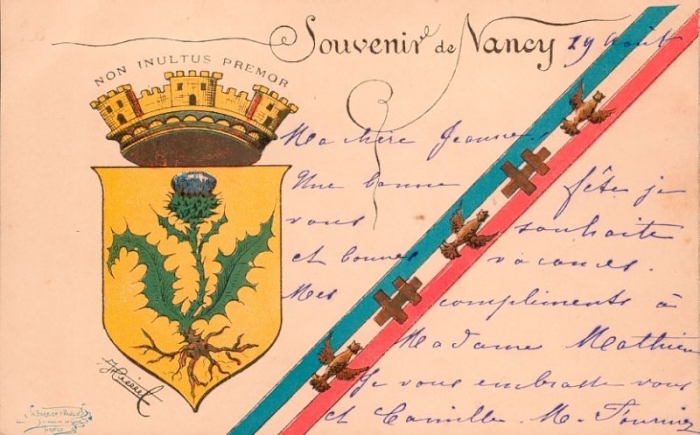 Souvenir de Nancy 29 Août
NON INULTUS PREMOR
Ma chère Jeanne
Une bonne fête je
vous souhaite
et bonnes vacances.
Mes compliments à
Madame Mathieu
Je vous embrasse vous
et Camille. M. Fournier